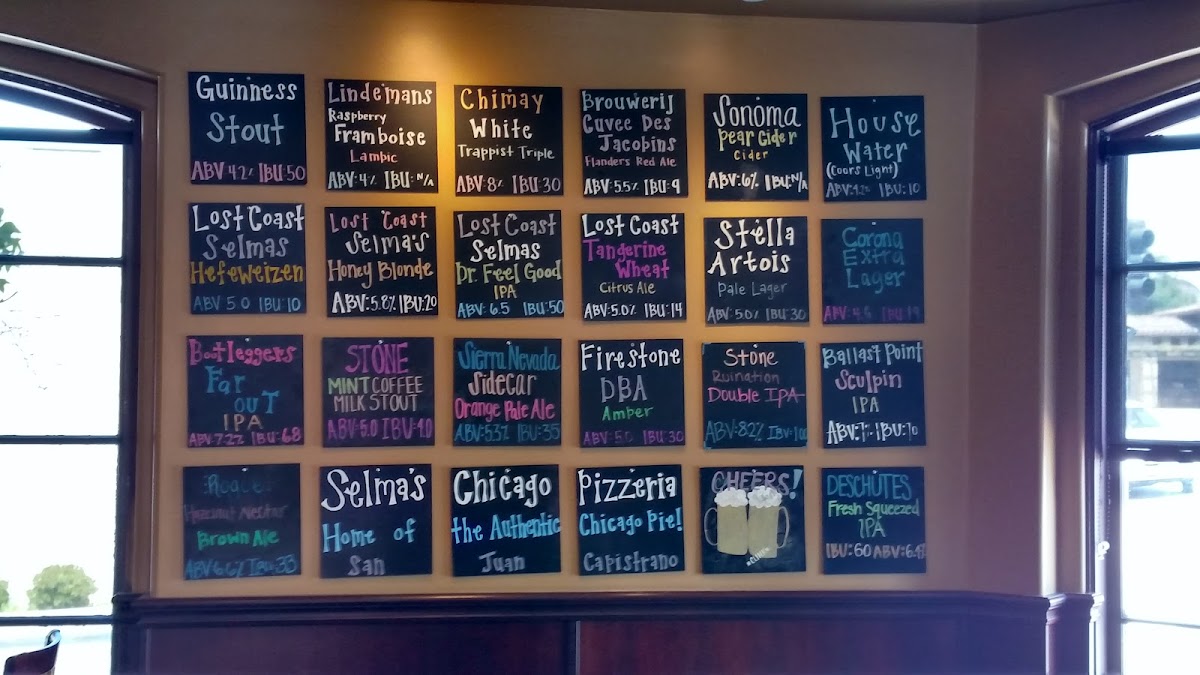 Guinness
Stout
ABV 4.2% IBU:50
Lindemans
Raspberry
Framboise
Lambic
ABV:4% IBU:N/A
Chimay
White
Trappist Triple
ABV:8% IBU:30
Brouwerij
Cuvee Des
Jacobins
Flanders Red Ale
ABV:5.5% IBU:9
Sonoma
Pear Cider
Cider
ABV:6% IBU:N/A
House
Water
(Coors Light)
IBU:10
Lost Coast
Selmas
Hefeweizen
ABV 5.0 IBU:10
Lost Coast
Selma's
Honey Blonde
ABV:5.8% IBU:20
Lost Coast
Selmas
Dr. Feel Good
IPA
ABV: 6.5 IBU:50
Lost Coast
Tangerine
Wheat
Citrus Ale
ABV:5.0% IBU:14
Stella
Artois
Pale Lager
ABV:5.0% IBU:30
Corona
Extra
Lager
ABV:4.6 IBU:19
Bootleggers
Far
Out
IPA
ABV:7.2% IBU:68
STONE
MINT COFFEE
MILK STOUT
ABV:5.0 IBU:40
Sierra Nevada
Sidecar
Orange Pale Ale
ABV:5.3% IBU:35
Firestone
DBA
Amber
ABV:5.0 IBU:30
Stone
Ruination
Double IPA
ABV:8.2% IBV:100
Ballast Point
Sculpin
IPA
ABV:7% IBU:70
Rogue
Hazelnut Nectar
Brown Ale
ABV 6.6% IBU:33
Selma's
Home of
San
Chicago
the Authentic
Juan
Pizzeria
Chicago Pie!
Capistrano
CHEERS!
DESCHUTES
Fresh Squeezed
IPA
IBU:60 ABV:6.4%